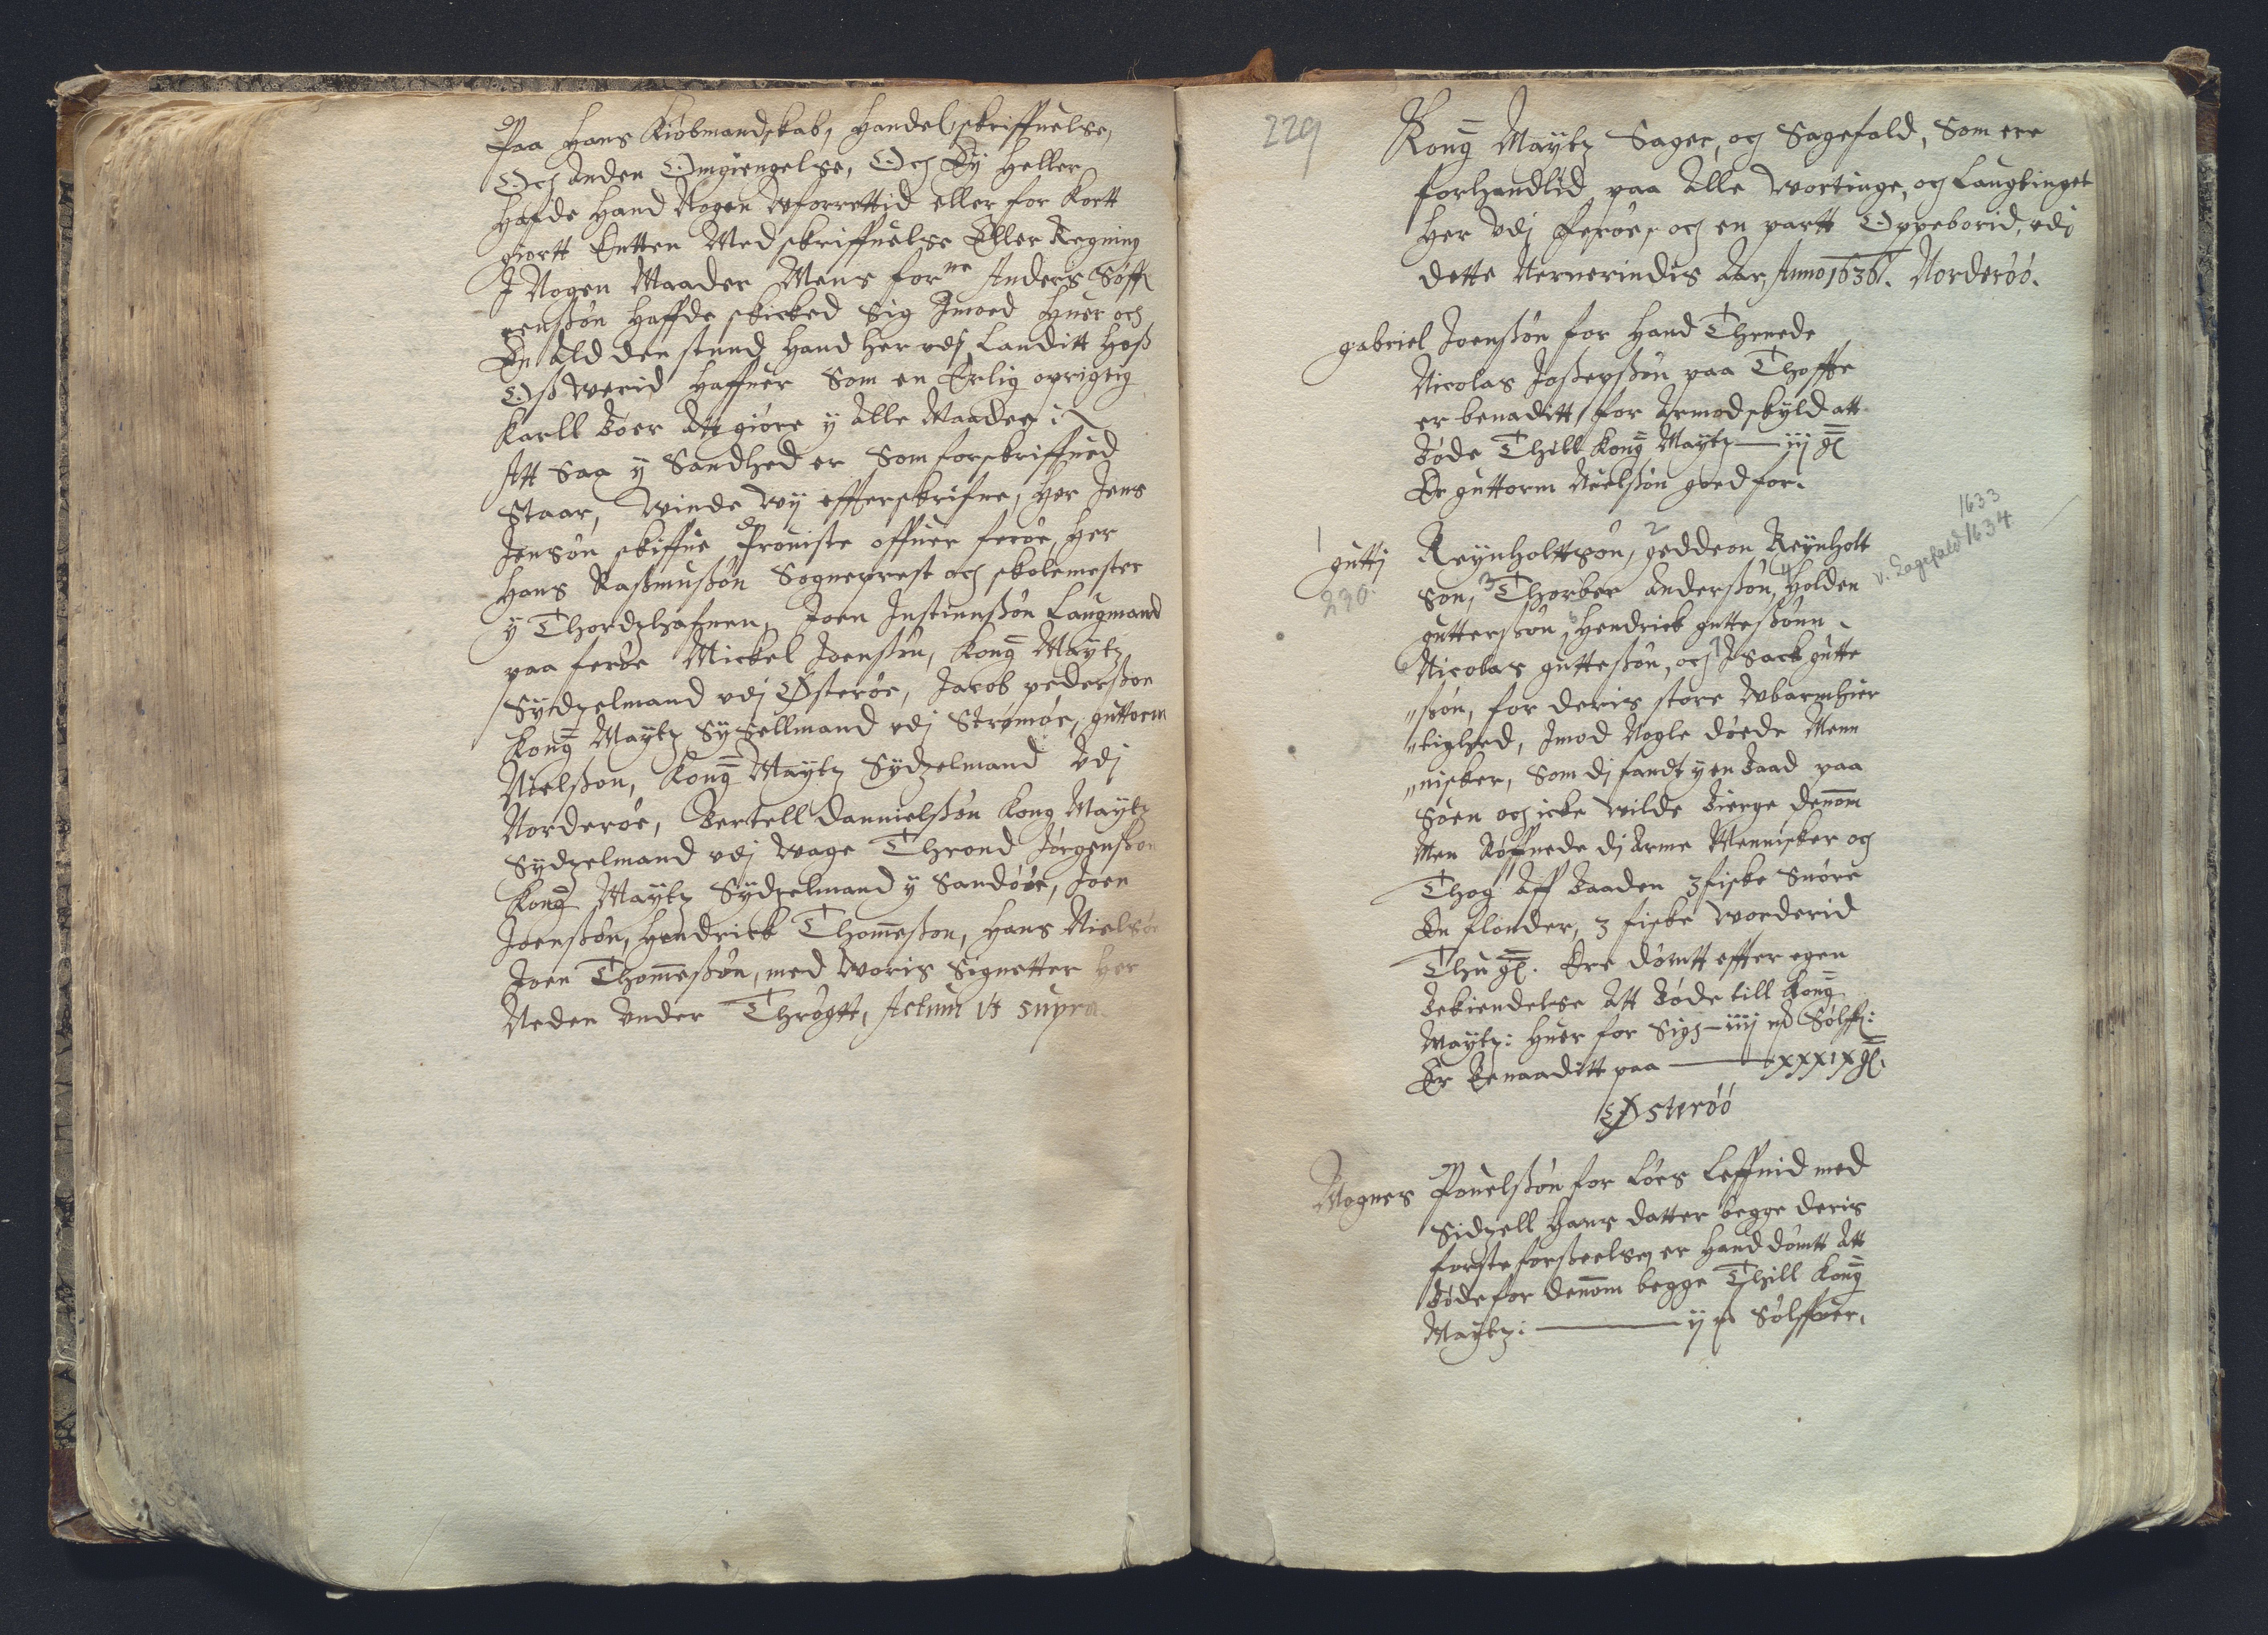 Paa Hans Kiöbmandskab, Handel, skriffuelse,
Och Anden Omgiengelse, Och Ey Heller
Hafde Hand Nogen Wforrettid eller for Kortt
giortt Entten Med skriffuelse Eller Regning
I Nogen Maader Mens forne Anders Söff
renßön Haffde skicked Sig Imoed Huer och
En ald den stund Hand Her vdj Landitt Hoß
Oß Werid Haffuer Som en Erlig oprigtig
Karll Böer Att giöre y Alle Maader :
Att Saa y Sandhed er Som forskriffued
Staar, Winde Wy effterskrifne, Her Jens
Jensön skiffue Prouiste offuer feröe, Her
Hans Raßmußön Sogneprest och skolemester
y Thordzhafnen, Joen Justinußön Laugmand
paa feröe Mickel Joenßön, Kong Maytz
Sydzelmand vdj Österöe, Jacob pederßon
Kong Maytz Syßellmand vdj Strömöe, guttorm
Nielßon, Kong Maytz Sydzelmand Vdj
Norderöe, Bertell Dannielßön Kong Maytz
Sydzelmand vdj Wage Thrond Jörgenßon
Kong Maytz Sydzelmand y Sandöe, Joen
Joenßön, Hendrick Thomeßon, Hans Nielsön
Joen Thomeßön, med Woris Signetter Her
Neden Vnder Thrögtt, Actum Vt supra.
229
Kong Maytz Sager, och Sagefald, Som ere
forhandlid paa Alle Wortinge, och Laugtinget
Her Vdj Feröe, och en partt Oppeborid, vdj
dette Nerverindis Aar, Anno 1636. Norderöö.
gabriel Joenßön for Hand Thrnede
Nicolas Joßepßön paa Thoffte
er benaditt for Armod skyld att
Böde Thill Kong Maytz — iij gl
Er guttorm Nielßön goed for.
1633
v. Sagefald 1634
1 2
guttj Reynholttsön, geddeon Reynholt
230.
Son, 3 Thorber Anderßön, 4 Holden
gutterßön, 5 Hendrick gutteßönn
6 Nicolas gutteßön, och 7 Isack gutte
"ßön, for deris store Wbarmhier
"tighed, Imod Nogle döede Menn
"nisker, Som dj fandt y en Baad paa
Söen och icke wilde Bierge dennom
Men Röffuede dj Arme Mennisker og
Thog Aff Baaden 3 fiske Snöre
En flönder, 3 fiske Worderid
Thu gl. Ere dömtt effter egen
Bekiendelse Att Böde till Kong
Maytz: Huer for Sig — iiij mk Sölff:
Er Benaaditt paa — xxxix gl.
Österöö
Mognes Pouelßön for Löes Leffnid med
Sidzell Hans datter begge deris
förste forßeelse, er Hand dömtt Att
Böde for dennom begge Thill Kong
Maytz: — ij mk Sölffuer.